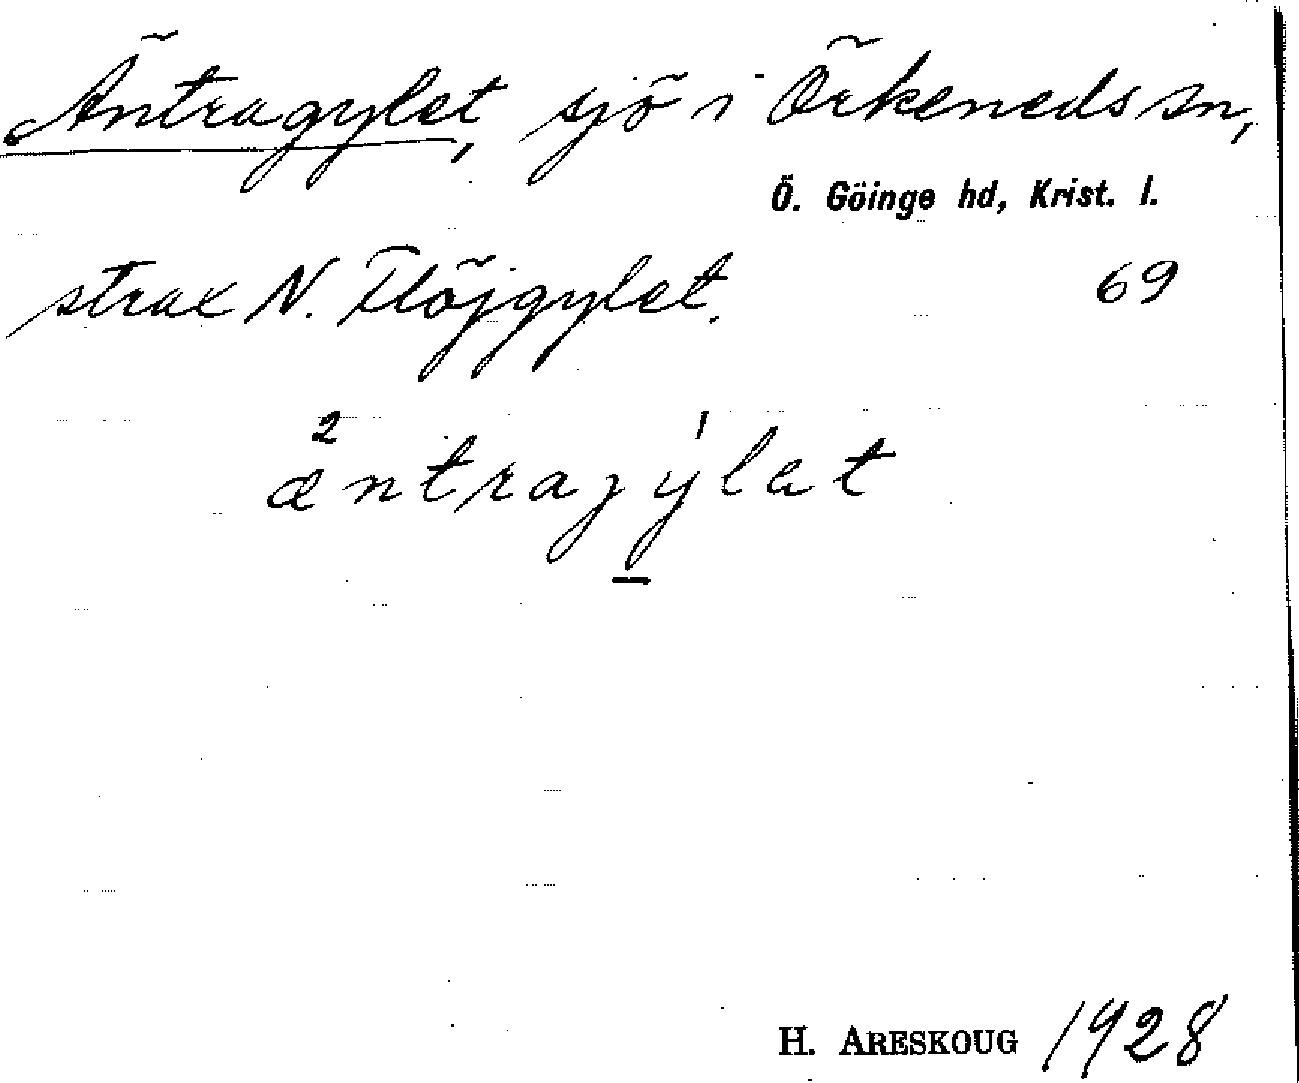 Äntragylet, sjö i Örkeneds sn,
Ö. Göinge hd, Krist. l.
strax N. Flöjgylet.
69
2 1
æntrajylat
H. ARESKOUG 1928